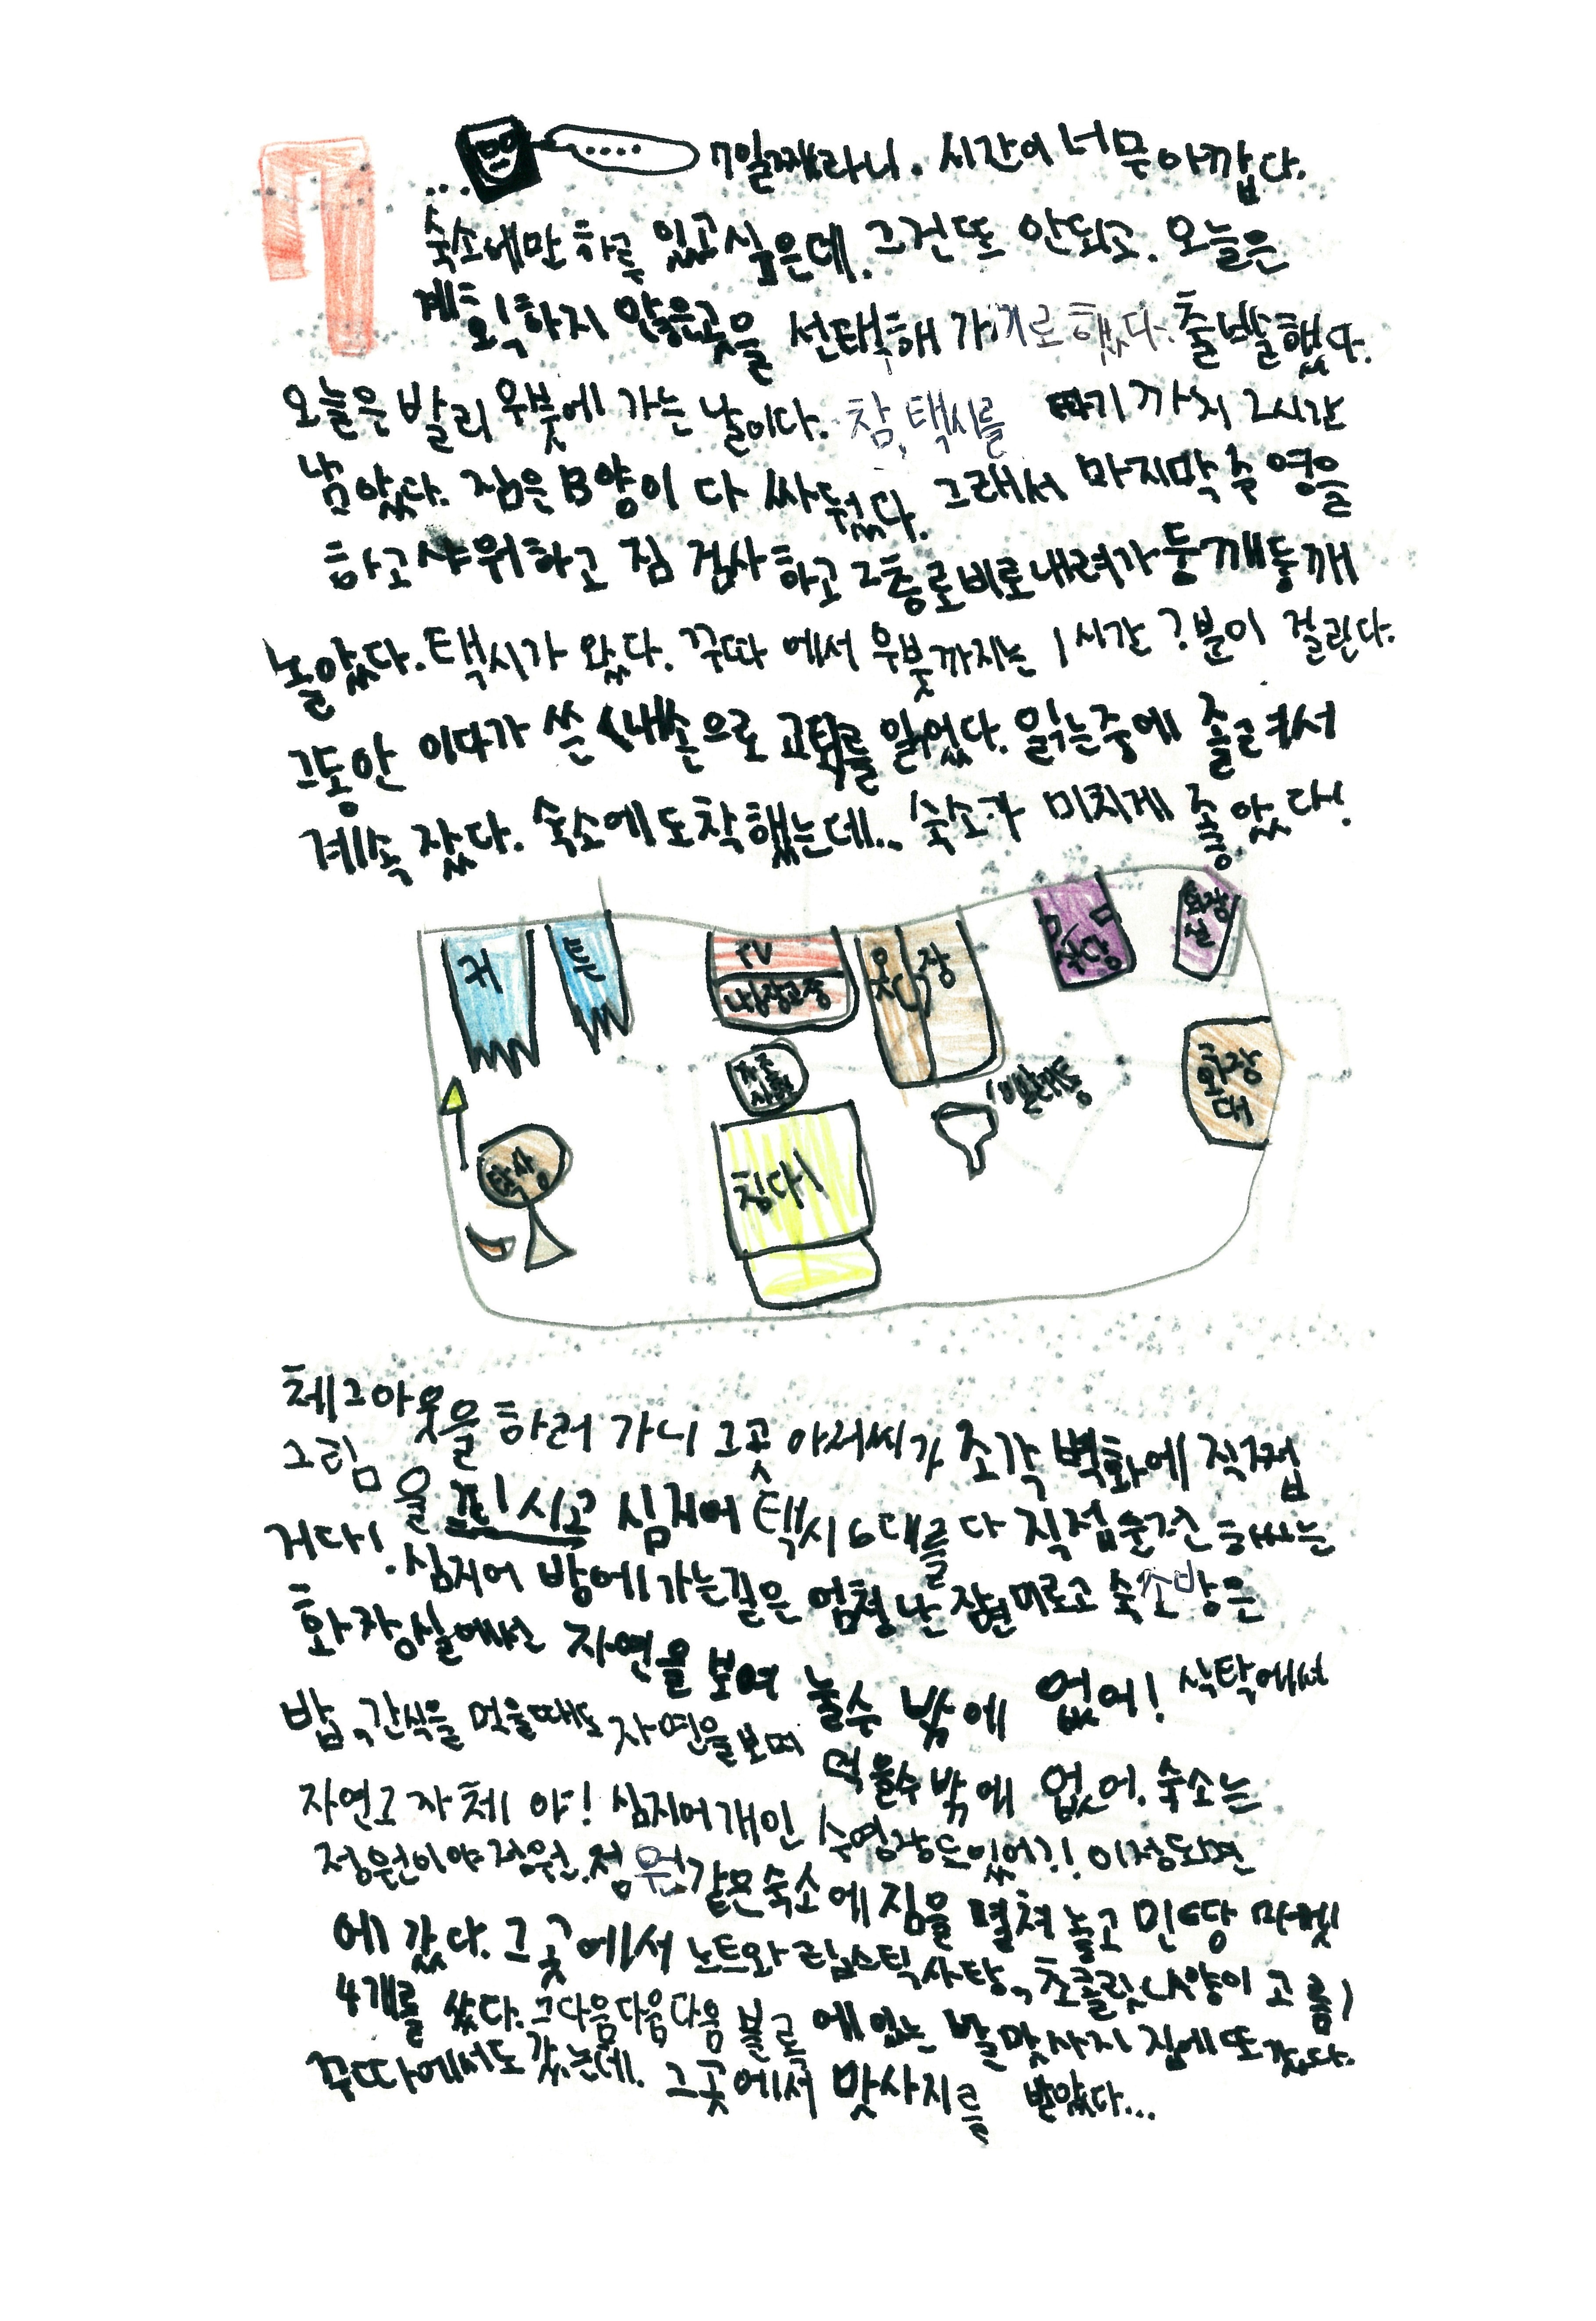 7
....
... 7일째라니. 시간이 너무 아깝다.
숙소에만 하루 있고싶은데. 그건또 안되고. 오늘은
계획하지 않은곳을 선택해 가기로 했다. 출발했다.
오늘은 발리 우붓에 가는 날이다. 참, 택시를 따기까지 2시간
남았다. 짐은 B양이 다 싸뒀다. 그래서 마지막 수영을
하고 샤워하고 짐 검사하고 2층로비로내려가 둥깨둥깨
놀았다. 택시가 왔다. 꾸따 에서 우붓까지는 1시간 ?분이 걸린다.
그동안 이다가 쓴 <내손으로 고택를 읽었다. 읽는중에 졸려서
계속 잤다. 숙소에도착했는데.. 숙소가 미치게 좋았다!
커 튼 TV 옷장 식당 화장실
냉장고중
화장대
탁상 침대1
체그아웃을 하러 가니 그곳 아저씨가 조각 벽화에 직접
그림을 시공 심지어 택시 6대를 다 직접운전 하싸는
거다!. 심지어 방에가는길은 엄청난 미로고 숙소방은
화장실에선 자연을 보여 눌수 밖에 없어! 식탁에서
밥, 간식을 먹을때도 자연을보며 먹을수밖에 없어. 숙소는
자연그자체 야! 심지어개인 수영장도있어?! 이정도면
정원이야정원. 정원같은숙소에 짐을 펼쳐놓고 민땅 마켓
에 갔다. 그곳에서 노트와 립스틱사탕, 초콜릿(A양이 고름)
4개를 샀다. 그다음다음다음 블록에있는 발맛사지 집에또갔다.
꾸따에서도갔는데. 그곳에서 맛사지를 받았다...